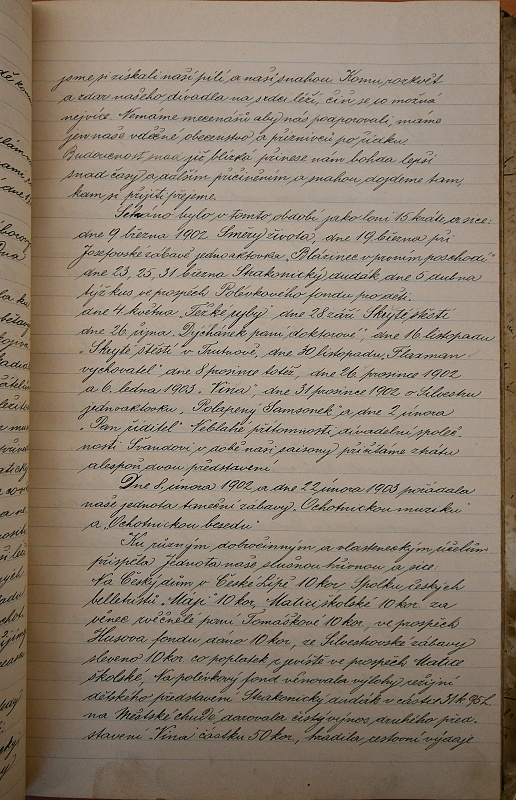 jsme si získali naší pílí a naší snahou. Komu rozkvět
a zdar našeho divadla na srdci leží, čiň se co možná
nejvíce. Nemáme mecenášů aby nás podporovali, máme
jen naše vděčné obecenstvo a příznivců po řídku.
Budoucnost snad již blízká přinese nám bohdá lepší
snad časy a dalším přičiněním a snahou dojdeme tam,
kam si přijíti přejeme.
Sehráno bylo v tomto období jako loni 15 kráte, a sice:
dne 9 března 1902 Směry života, dne 19 března při
Josefovské zábavě jednoaktovka „Blázinec v prvním poschodí"
dne 23, 25, 31 března Strakonický dudák, dne 5 dubna
týž kus ve prospěch Polévkového fondu pro děti.
dne 4 května „Těžké ryby" dne 28 září Skryté štěstí
dne 26 října „Dýchánek paní doktorové", dne 16 listopadu
„Skryté štěstí v Trutnově, dne 30 listopadu „Flaxman
vychovatel" dne 8 prosince totéž, dne 26 prosince 1902
a 6. ledna 1903 „Vina", dne 31 prosince 1902 o Silvestru
jednoaktovku „Polapený Samsonek" a dne 2, února
„Pan ředitel" Neblahé přítomnosti divadelní společ-
nosti Švandovi v době naší saisony přičítáme ztrátu
alespoň dvou představení.
Dne 8, února 1902 a dne 22, února 1903 pořádala
naše jednota taneční zábavy „Ochotnickou muziku"
a „Ochotnickou besedu"
Ku různým dobročinným a vlasteneckým účelům
přispěla Jednota naše slušnou hřivnou a sice:
Na Český dům v České Lípě 10 kor, Spolku českých
belletristů „Máj" 10 kor, Matici školské 10 kor, za
věnec zvěčnělé paní Tomáškové 10 kor, ve prospěch
Husova fondu dáno 10 kor, ze Silvestrovské zábavy
sleveno 10 kor co poplatek z jeviště ve prospěch Matice
školské, Na polévkový fond věnovala výlohy režijní
dětského představení Strakonický dudák v částce 31 k 95 h.
na Městské chudé, darovala čistý výnos druhého před-
stavení „Vina" částku 50 kor, hradila cestovní výdaje